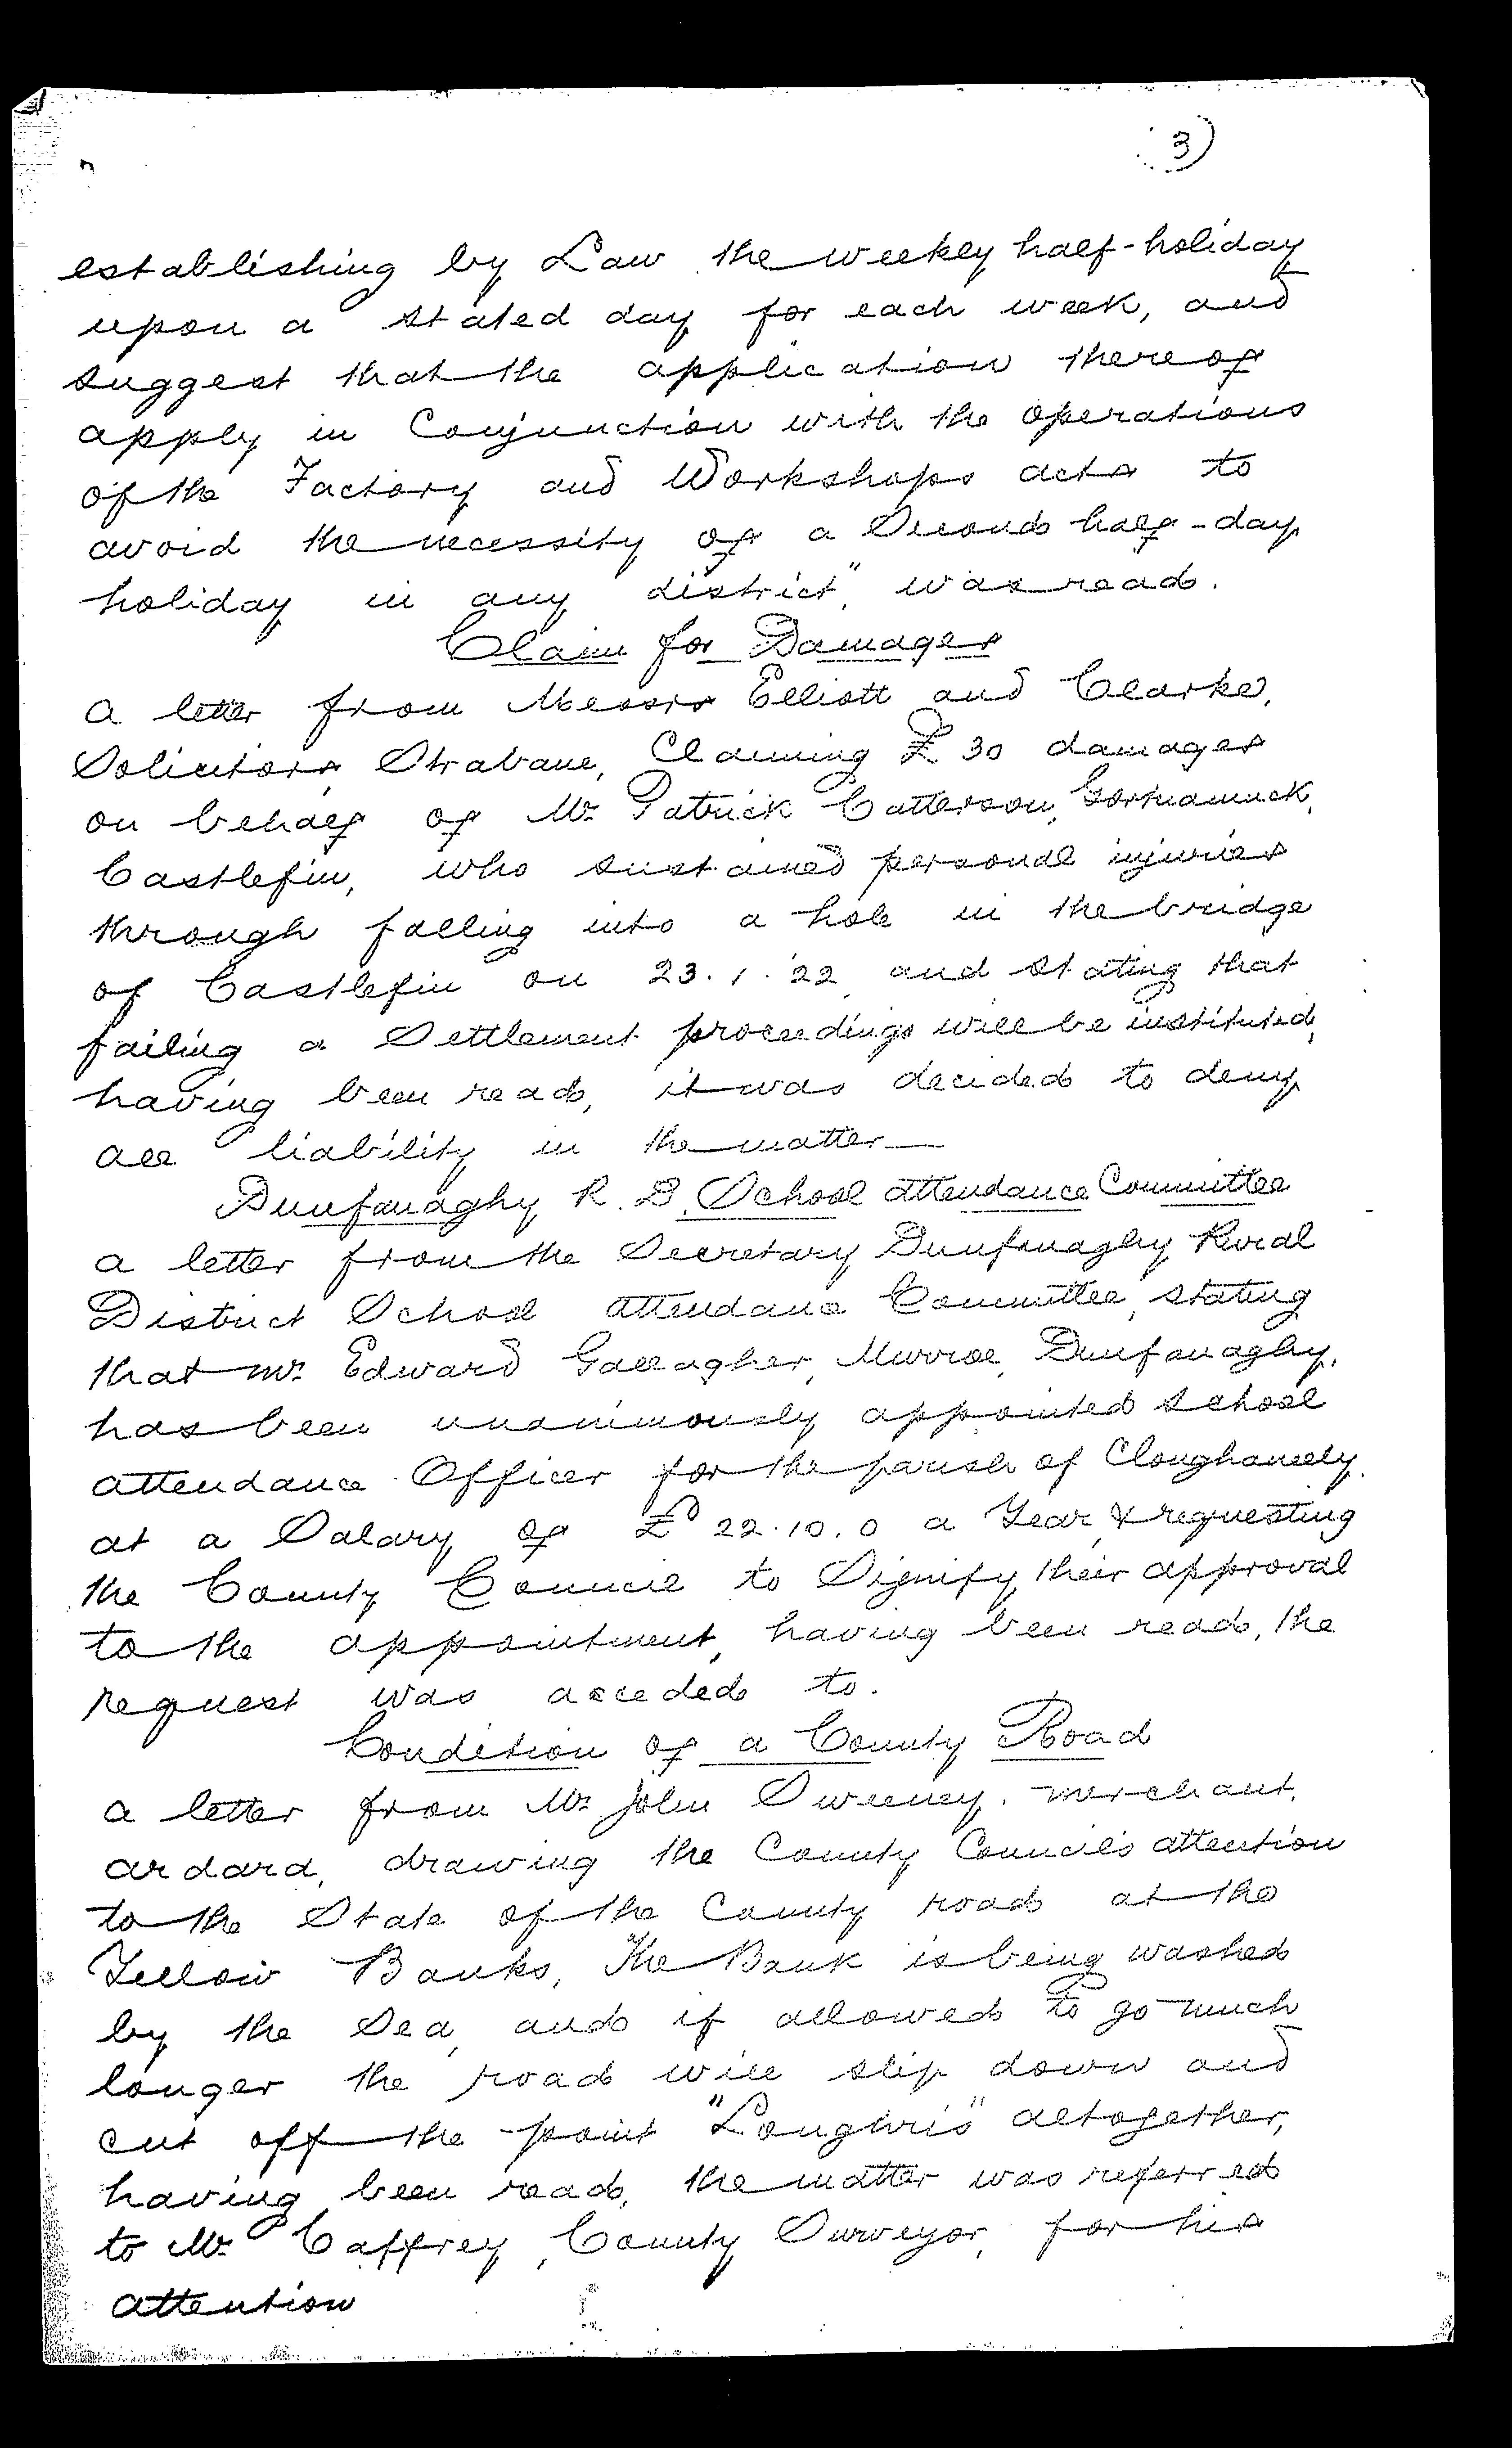 3)
establishing by Law the weekly half-holiday
upon a stated day for each week, and
suggest that the application thereof
apply in Conjunction with the operations
of the Factory and Workshops acts to
avoid the necessity of a Second half-day
holiday in any district", was read.
Claim for Damages
a letter from Messrs Elliott and Clarke,
Solicitors Strabane, Claiming £30 damages
on behalf of Mr Patrick Catterson, Gortnamuck,
Castlefin, who sustained personal injuries
through falling into a hole in the bridge
of Castlefin on 23.1.22 and stating that
failing a Settlement proceedings will be instituted,
having been read, it was decided to deny
all liability in the matter—
Dunfanaghy R.D. School attendance Committee
a letter from the Secretary Dunfanaghy Rural
District School attendance Committee, stating
that Mr Edward Gallagher, Murroe, Dunfanaghy,
has been unanimously appointed School
attendance Officer for the parish of Cloughaneely
at a Salary of £22.10.0 a Year, & requesting
the County Council to Signify their approval
to the appointment, having been read, the
request was acceded to.
Condition of a County Road
a letter from Mr John Sweeney. merchant,
ardara, drawing the County Council's attention
to the State of the County road at the
Yellow Banks, The Bank is being washed
by the Sea, and if allowed to go much
longer the road will slip down and
cut off the point "Loughris" altogether,
having been read, the matter was referred
to Mr Caffrey, County Surveyor, for his
attention